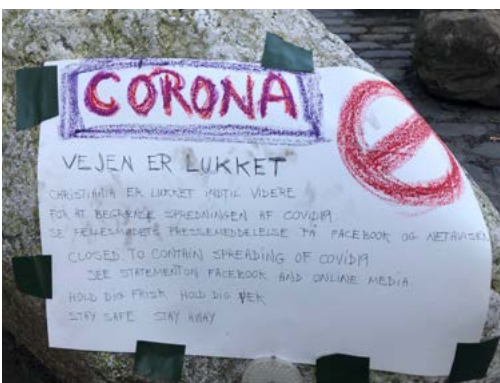 CORONA
VEJEN ER LUKKET
CHRISTIANIA ER LUKKET INDTIL VIDERE
FOR AT BEGRÆNSE SPREDNINGEN AF COVID19.
SE FELLESMØDETS PRESSEMEDDELELSE PÅ FACEBOOK OG NETAVISEN
CLOSED TO CONTAIN SPREADING OF COVID19
SEE STATEMENT ON FACEBOOK AND ONLINE MEDIA
HOLD DIG FRISK HOLD DIG VÆK
STAY SAFE STAY AWAY